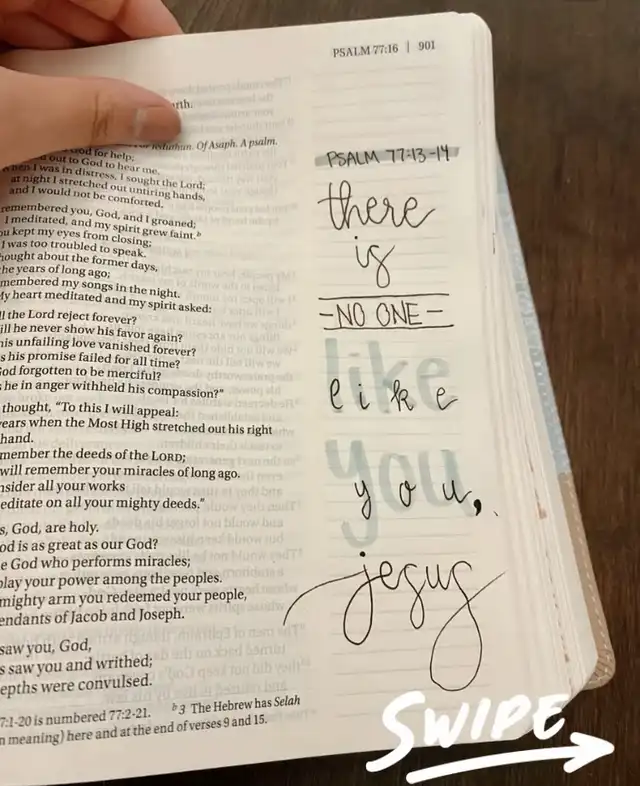 PSALM 77:16 | 901
rth.
Of Asaph. A psalm.
God for help;
out to God to hear me.
When I was in distress, I sought the Lord;
at night I stretched out untiring hands,
and I would not be comforted.
remembered you, God, and I groaned;
I meditated, and my spirit grew faint.b
ou kept my eyes from closing;
I was too troubled to speak.
hought about the former days,
he years of long ago;
membered my songs in the night.
My heart meditated and my spirit asked:
ll the Lord reject forever?
ill he never show his favor again?
his unfailing love vanished forever?
s his promise failed for all time?
God forgotten to be merciful?
s he in anger withheld his compassion?”
thought, “To this I will appeal:
years when the Most High stretched out his right
hand.
member the deeds of the LORD;
will remember your miracles of long ago.
nsider all your works
editate on all your mighty deeds.”
s, God, are holy.
od is as great as our God?
e God who performs miracles;
play your power among the peoples.
mighty arm you redeemed your people,
endants of Jacob and Joseph.
saw you, God,
s saw you and writhed;
epths were convulsed.
7:1-20 is numbered 77:2-21. b 3 The Hebrew has Selah
n meaning) here and at the end of verses 9 and 15.
PSALM 77:13-14
there
is
-NO ONE-
like
like
you
you,
jesus
SWIPE